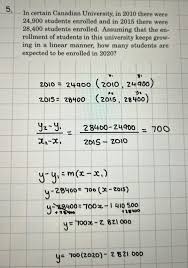 5.
In certain Canadian University, in 2010 there were
24,900 students enrolled and in 2015 there were
28,400 students enrolled. Assuming that the en-
rollment of students in this university keeps grow-
ing in a linear manner, how many students are
expected to be enrolled in 2020?
x₁ y₁
2010 = 24900 (2010, 24900)
x₂ y₂
2015 = 28400 (2015, 28400)
y₂-y₁ = 28400-24900 = 700
x₂-x₁ 2015 - 2010
y-y₁ = m(x-x₁)
y-28400 = 700 (x-2015)
y-28400 = 700x - 1 410 500
+28400 +28400
y = 700x - 2 821 000
y = 700(2020) - 2 821 000